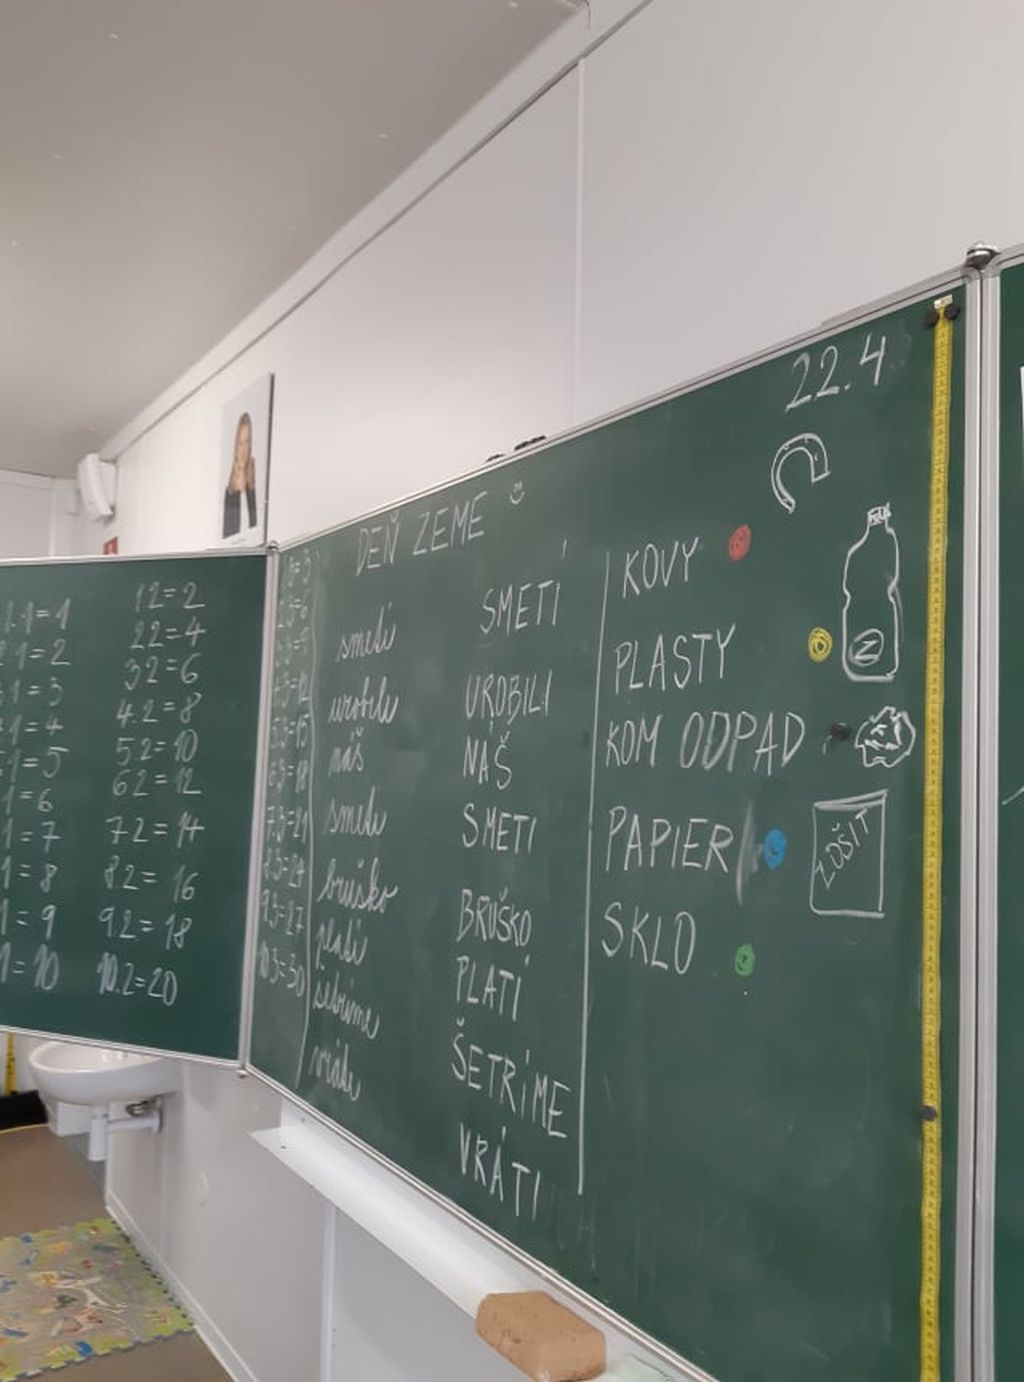 22.4
DEŇ ZEME
1.1=1
2.1=2
1=3
1=4
1=5
1=6
1=7
1=8
1=9
1=10
1 2=2
2 2=4
3 2=6
4.2=8
5 2=10
6 2=12
7 2=14
8 2=16
9.2=18
10.2=20
7.3=21
8.3=24
9.3=27
10.3=30
smeti
urobili
náš
smeti
bruško
platí
šetríme
vráti
SMETÍ
UROBILI
NÁŠ
SMETI
BRUŠKO
PLATÍ
ŠETRÍME
VRÁTI
KOVY
PLASTY
Z
KOM ODPAD
PAPIER
ZOŠIT
SKLO